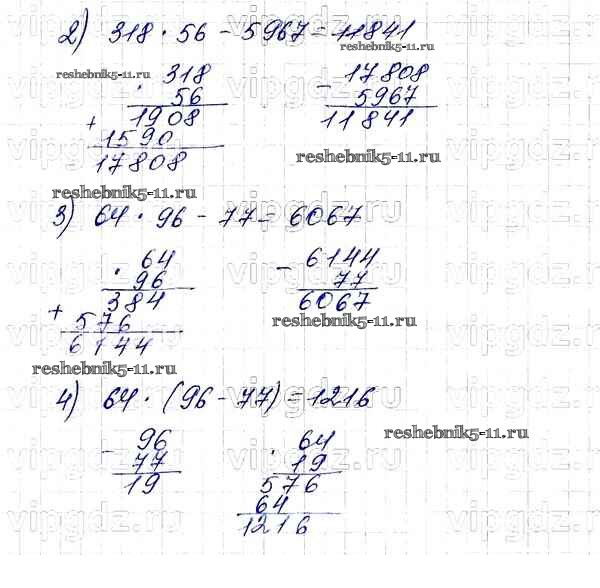 2) 318 · 56 - 5967 = 11841
reshebnik5-11.ru
reshebnik5-11.ru
· 318
56
1908
+
1590
17808
- 17808
5967
11841
reshebnik5-11.ru
reshebnik5-11.ru
3) 64 · 96 - 77 = 6067
· 64
96
384
+
576
6144
- 6144
77
6067
reshebnik5-11.ru
reshebnik5-11.ru
4) 64 · (96 - 77) = 1216
reshebnik5-11.ru
- 96
77
19
· 64
19
576
64
1216
vipgdz.ru